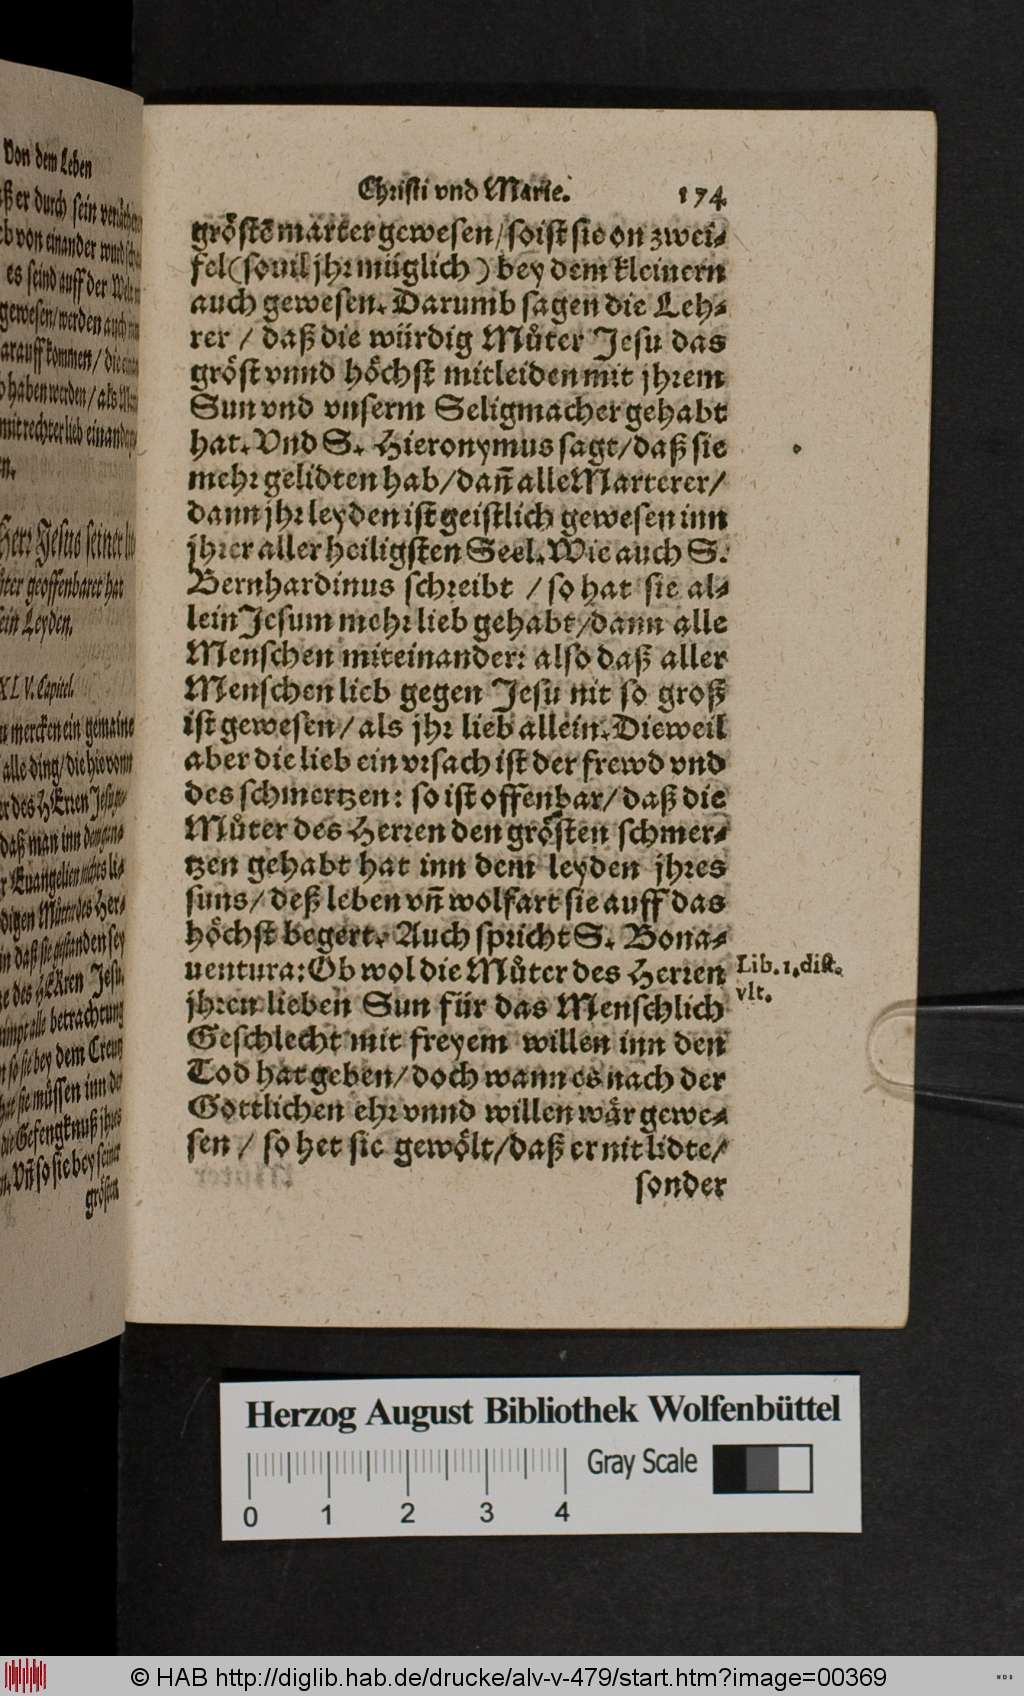 Von dem Leben
ß er durch sein
eb von einander wurd
es seind auff der Welt
gewesen/werden auch
arauff kommen/die
haben werden/als
mit rechter lieb einander
n.
Herr Jesus seiner
ter geoffenbaret hat
ein Leyden.
XLV. Capitel.
mercken ein gemaine
alle ding/die hie von
des HErren Jesu
daß man inn
Euangelien nichts
digen Můter des Her-
daß sie gestanden sey
des HERren Jesu
alle betrachtung
so sie bey dem Creutz
hat sie müssen inn der
die Gefengknuß jhres
n. Vñ so sie bey seiner
grösten
Christi vnd Marie. 174
gröstē marter gewesen/so ist sie on zwei-
fel (souil jhr müglich) bey dem kleinern
auch gewesen. Darumb sagen die Leh-
rer / daß die würdig Můter Jesu das
gröst vnnd höchst mitleiden mit jhrem
Sun vnd vnserm Seligmacher gehabt
hat. Vnd S. Hieronymus sagt/daß sie
mehr gelidten hab/dañ alle Marterer/
dann jhr leyden ist geistlich gewesen inn
jhrer aller heiligsten Seel. Wie auch S.
Bernhardinus schreibt / so hat sie al-
lein Jesum mehr lieb gehabt/dann alle
Menschen miteinander: also daß aller
Menschen lieb gegen Jesu nit so groß
ist gewesen/als jhr lieb allein. Dieweil
aber die lieb ein vrsach ist der frewd vnd
des schmertzen: so ist offenbar/daß die
Můter des Herren den grösten schmer-
tzen gehabt hat inn dem leyden jhres
suns/deß leben vñ wolfart sie auff das
höchst begert. Auch spricht S. Bona-
uentura: Ob wol die Můter des Herren
jhren lieben Sun für das Menschlich
Geschlecht mit freyem willen inn den
Tod hat geben/doch wann es nach der
Göttlichen ehr vnnd willen wär gewe-
sen / so het sie gewölt/daß er nit lidte/
sonder
Lib. 1. dist.
vlt.
Herzog August Bibliothek Wolfenbüttel
Gray Scale
0 1 2 3 4
© HAB http://diglib.hab.de/drucke/alv-v-479/start.htm?image=00369